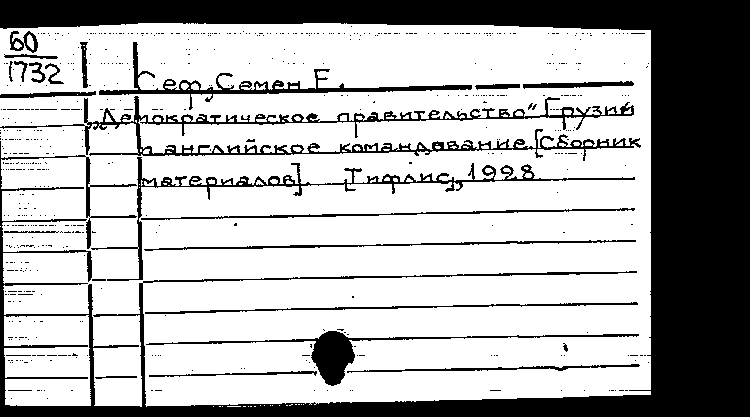 60
1732
Сеф, Семен Е.
„Демократическое правительство" Грузии
и английское командование. [Сборник
материалов]. [Тифлис], 1928